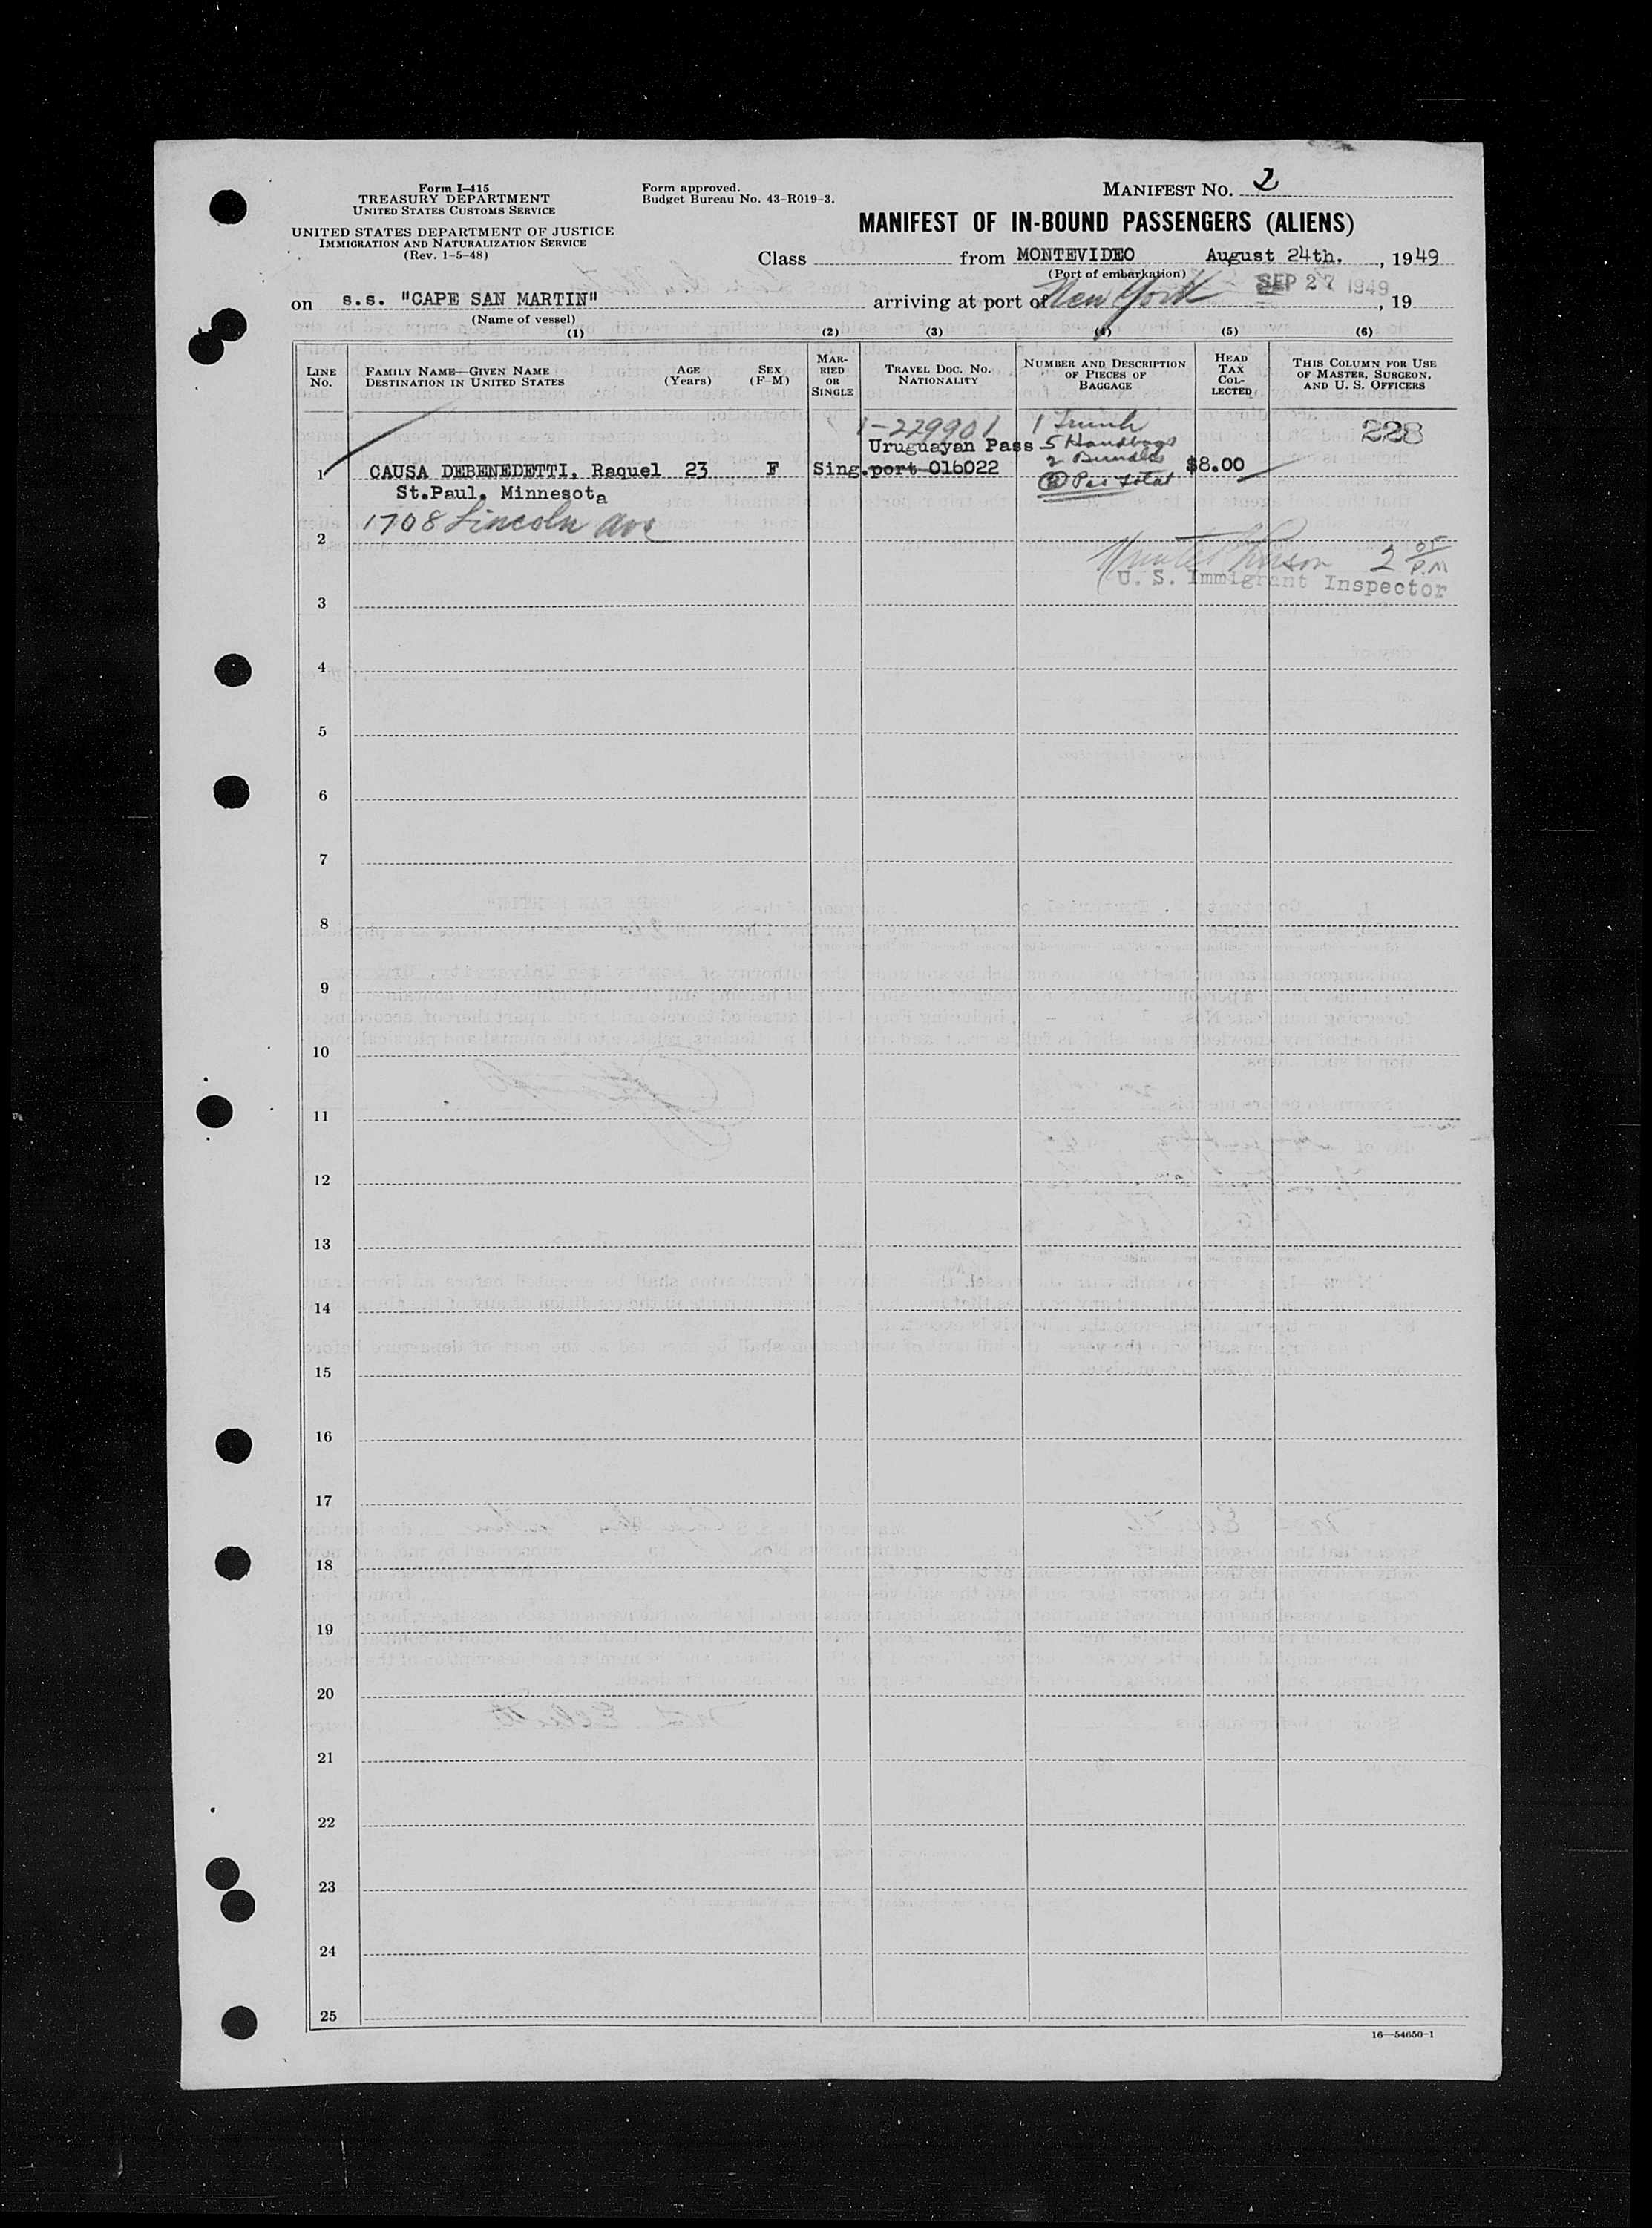 Form I-415
TREASURY DEPARTMENT
UNITED STATES CUSTOMS SERVICE
UNITED STATES DEPARTMENT OF JUSTICE
IMMIGRATION AND NATURALIZATION SERVICE
(Rev. 1-5-48)
Form approved.
Budget Bureau No. 43-R019-3.
MANIFEST NO. 2
MANIFEST OF IN-BOUND PASSENGERS (ALIENS)
Class from MONTEVIDEO August 24th. , 1949
(Port of embarkation)
on s.s. "CAPE SAN MARTIN" arriving at port of New York SEP 27 1949 , 19
(Name of vessel)
(1) (2) (3) (4) (5) (6)
LINE No.
FAMILY NAME—GIVEN NAME
DESTINATION IN UNITED STATES
AGE (Years)
SEX (F-M)
MARRIED OR SINGLE
TRAVEL DOC. NO.
NATIONALITY
NUMBER AND DESCRIPTION OF PIECES OF BAGGAGE
HEAD TAX COLLECTED
THIS COLUMN FOR USE OF MASTER, SURGEON, AND U. S. OFFICERS
1-229901 1 Trunk 228
Uruguayan Pass 5 Handbags
2 Bundles
1 CAUSA DEBENEDETTI, Raquel 23 F Sing. port 016022 $8.00
St.Paul. Minnesota 8 Pcs total
1708 Lincoln ave
2
2 05 P.M
U. S. Immigrant Inspector
3
4
5
6
7
8
9
10
11
12
13
14
15
16
17
18
19
20
21
22
23
24
25
16—54650-1